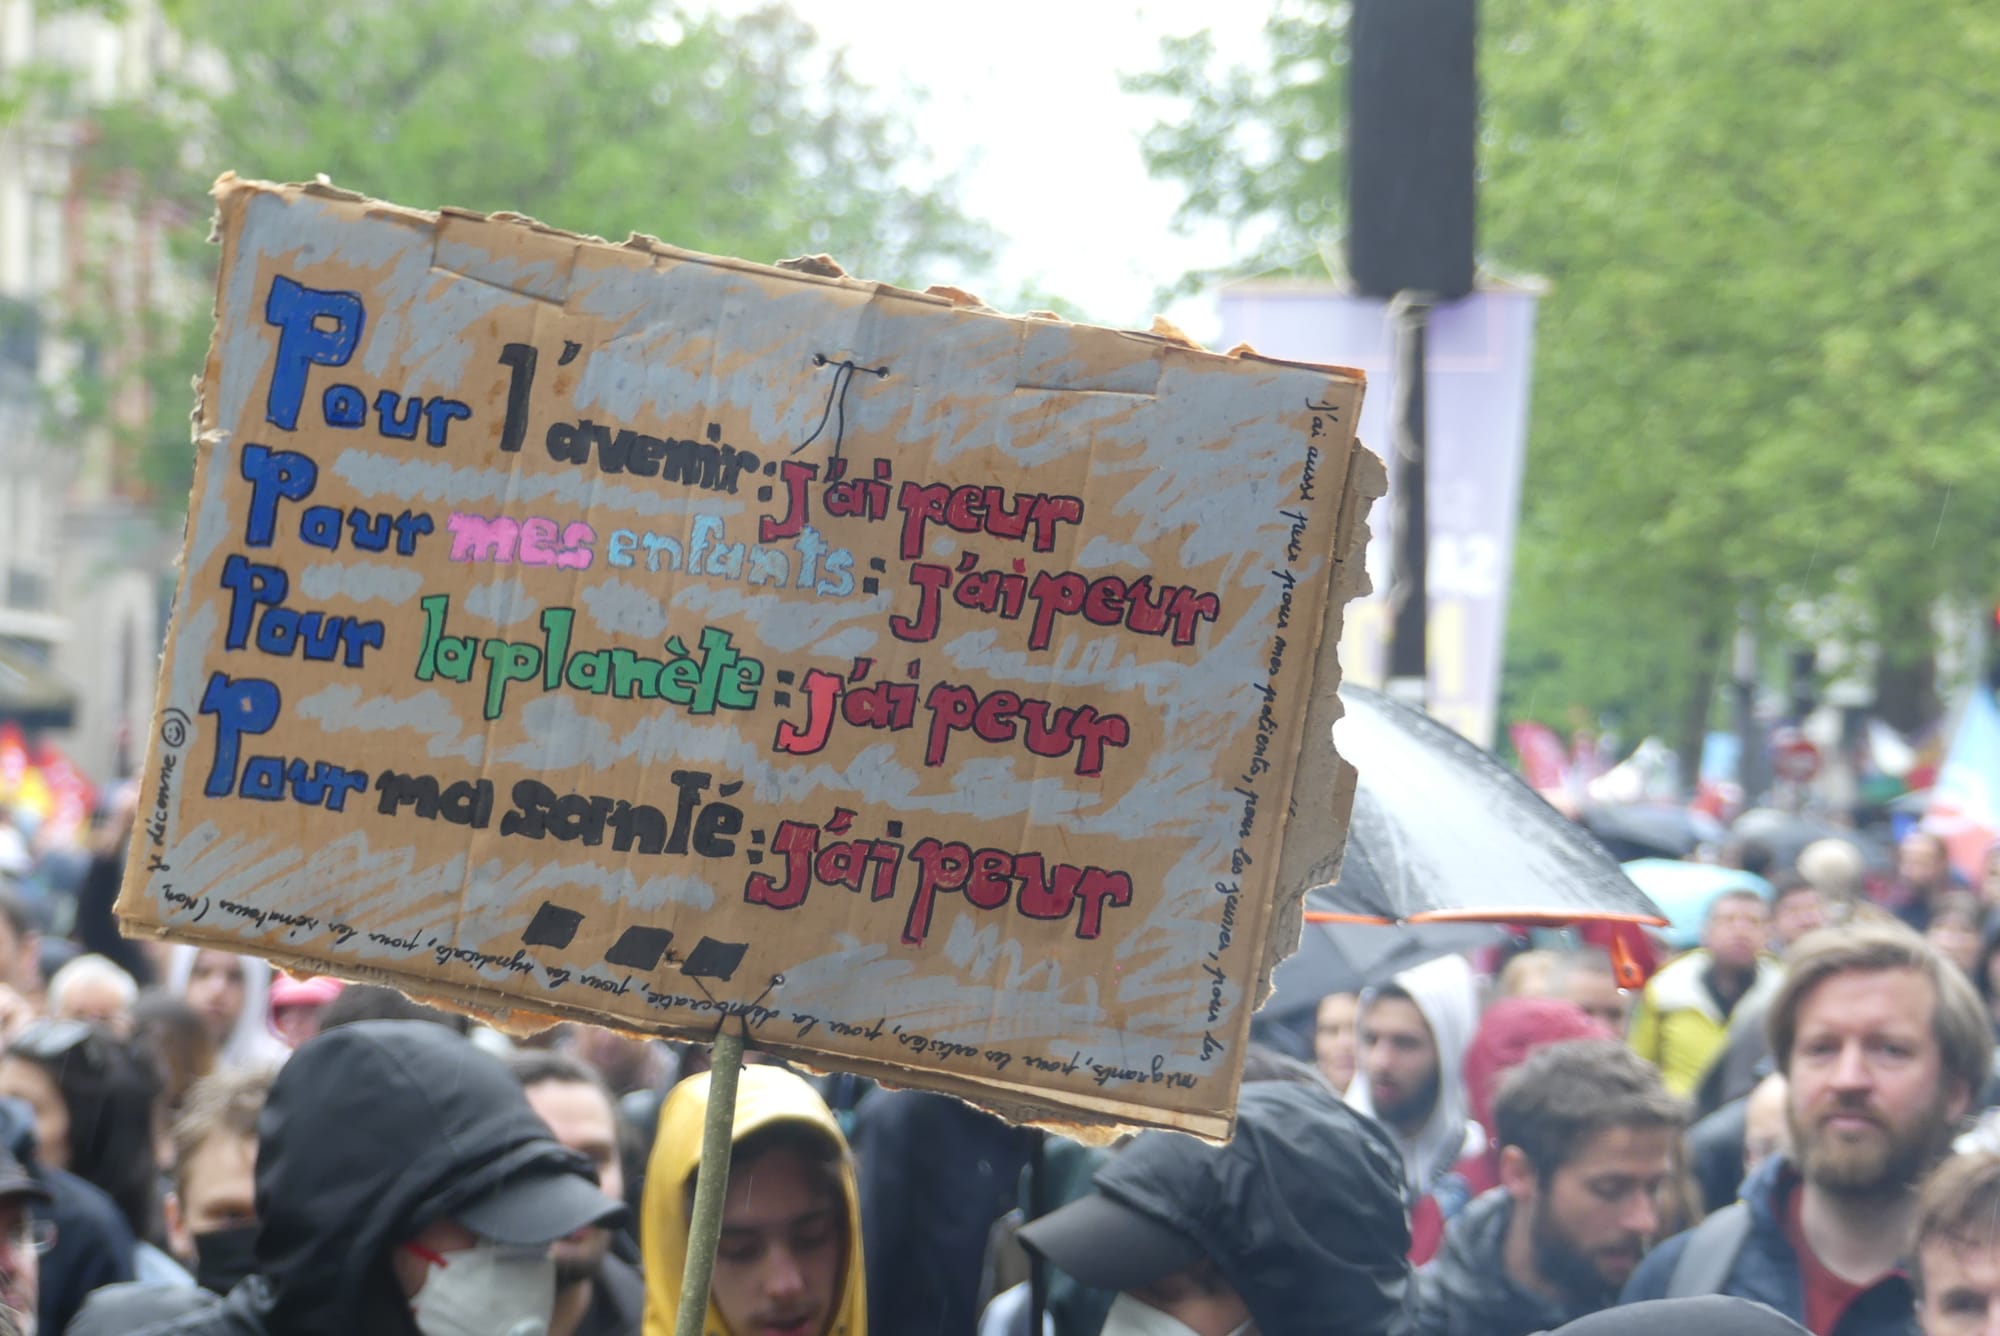 Pour l'avenir : J'ai peur
Pour mes enfants : J'ai peur
Pour la planète : J'ai peur
Pour ma santé : J'ai peur
...
J'ai aussi peur pour mes patients, pour les jeunes, pour les
migrants, pour les artistes, pour la démocratie, pour les syndicats, pour les sénateurs (Non
je déconne ☺)